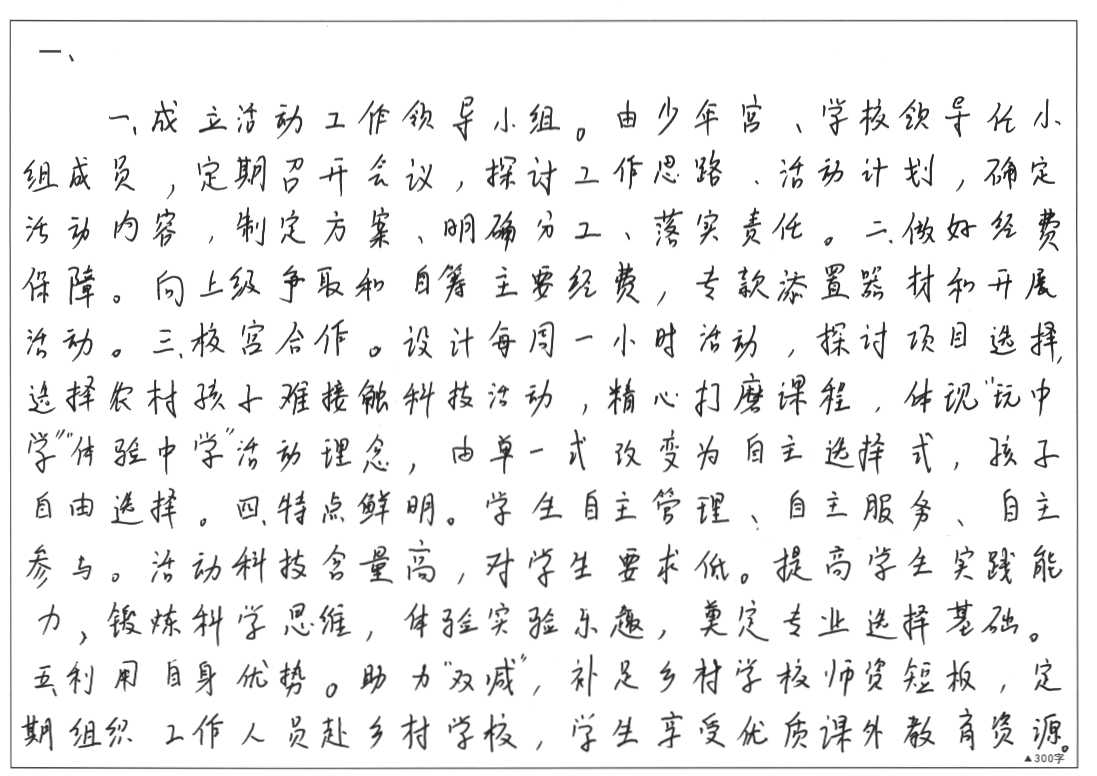 一、
一、成立活动工作领导小组。由少年宫、学校领导任小
组成员，定期召开会议，探讨工作思路、活动计划，确定
活动内容，制定方案、明确分工、落实责任。二、做好经费
保障。向上级争取和自筹主要经费，专款添置器材和开展
活动。三、校宫合作。设计每周一小时活动，探讨项目选择，
选择农村孩子难接触科技活动，精心打磨课程，体现“玩中
学”“体验中学”活动理念，由单一式改变为自主选择式，孩子
自由选择。四、特点鲜明。学生自主管理、自主服务、自主
参与。活动科技含量高，对学生要求低。提高学生实践能
力，锻炼科学思维，体验实验乐趣，奠定专业选择基础。
五、利用自身优势。助力“双减”，补足乡村学校师资短板，定
期组织工作人员赴乡村学校，学生享受优质课外教育资源。
▲300字